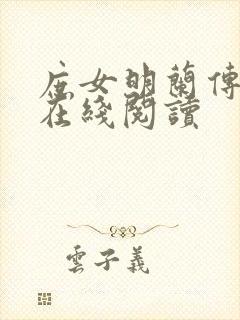 庶女明蘭傳
在綫閱讀
雲子義